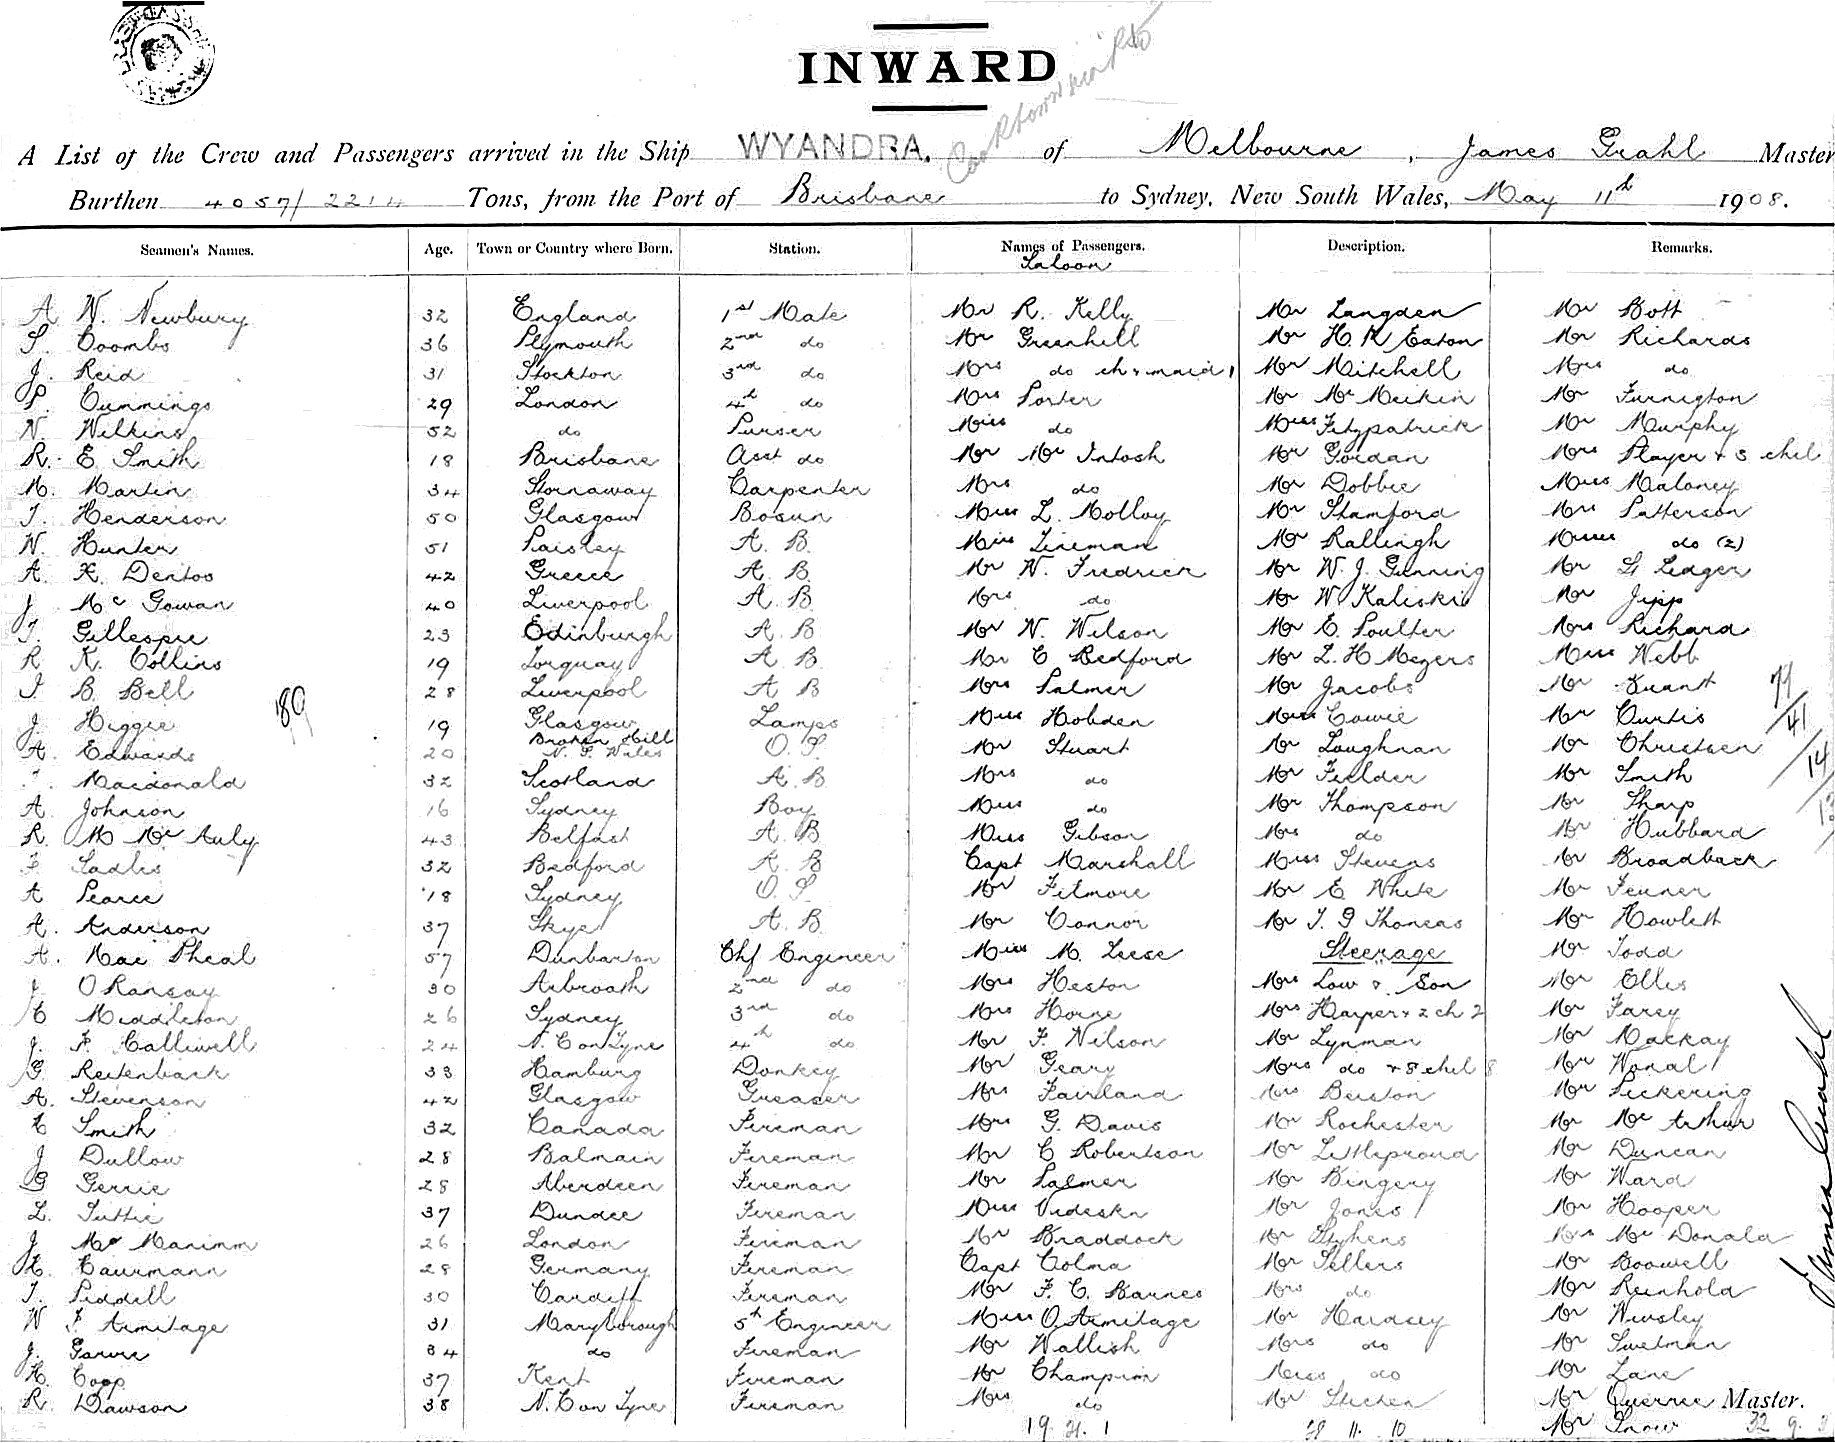 INWARD
A List of the Crew and Passengers arrived in the Ship WYANDRA. of Melbourne, James Grahl Master
Burthen 4057/2214 Tons, from the Port of Brisbane to Sydney, New South Wales, May 11th 1908.
Seamen's Names. Age. Town or Country where Born. Station. Names of Passengers. Description. Remarks.
Saloon
A W. Newbury 32 England 1st Mate Mr R. Kelly Mr Langden Mr Bott
S. Coombs 36 Plymouth 2nd do Mr Greenhill Mr H. R Eaton Mr Richards
J. Reid 31 Stockton 3rd do Mrs do ch & maid 1 Mr Mitchell Mrs do
P. Cummings 29 London 4th do Mrs Porter Mr Mc Meikin Mr Furnigton
N. Wilkins 52 do Purser Miss do Miss Fitzpatrick Mr Murphy
R. E. Smith 18 Brisbane Asst do Mr Mc Intosh Mr Gordan Mrs Player + 3 chil
M. Martin 34 Stornaway Carpenter Mrs do Mr Dobbie Miss Maloney
T. Henderson 50 Glasgow Bosun Miss L. Molloy Mr Stamford Mrs Patterson
W. Hunter 51 Paisley A. B. Miss Lineman Mr Rallingh Misses do (2)
A. X. Dentos 42 Greece A. B. Mr W. Fredrick Mr W. J. Gunning Mr St Ledger
J. Mc Gowan 40 Liverpool A. B. Mrs do Mr W Kaliski Mr Jipp
T. Gillespie 23 Edinburgh A. B Mr N. Wilson Mr E. Poulter Mrs Richard
R K. Collins 19 Torquay A B. Mr C Bedford Mr L. H Mezers Miss Webb
J. B. Bell 28 Liverpool A B Mrs Palmer Mr Jacobs Mr
J. Higgie 19 Glasgow Lamps Miss Hobden Miss Cowie Mr Curtis
A. Edwards 20 Broken Hill N. S. Wales O. S. Mr Stuart Mr Loughnan Mr Christsen
Macdonald 32 Scotland A. B. Mrs do Mr Fielder Mr Smith
A. Johnson 16 Sydney Boy Miss do Mr Thompson Mr Tharp
R. M Mc Auly 43 Belfast A. B. Miss Gibson Mrs do Mr Hubbard
F. Ladles 32 Bedford A. B Capt Marshall Miss Stevens Mr Broadback
A Pearce 18 Sydney O. S. Mr Filmore Mr E White Mr Fenner
A. Anderson 37 Skye A. B. Mr Connor Mr T. G Thomas Mr Howlett
A. Mac Pheal 57 Dunbarton Chf Engineer Miss M. Leese Steerage Mr Todd
J. O Ransay 30 Arbroath 2nd do Mrs Heston Mrs Low & Son Mr Elles
C Middleton 26 Sydney 3rd do Mrs Horne Mrs Harper + 2 ch 2 Mr Farey
J. F. Calliwell 24 N. C on Tyne 4th do Mr F. Nilson Mr Lynman Mr Mackay
G. Reitenback 33 Hamburg Donkey Mr Geary Mrs do + 8 chil 8 Mr Wonal
A. Stevenson 42 Glasgow Greaser Mrs Fairland Mrs Beiston Mr Pickering
C Smith 32 Canada Fireman Mrs G. Davis Mr Rochester Mr Mc Arthur
J Dullow 28 Balmain Fireman Mr C Robertson Mr Littleproud Mr Duncan
G Gerrie 28 Aberdeen Fireman Mr Palmer Mr Bingery Mr Ward
L. Tuttie 37 Dundee Fireman Miss Videskn Mr Jones Mr Hooper
J. Mc Manimm 26 London Fireman Mr Braddock Mr Stphens Mrs Mc Donald
H. Caurmann 28 Germany Fireman Capt Colma Mr Sellers Mr Boowell
T. Piddell 30 Cardiff Fireman Mr F. C. Barnes Mrs do Mr Reinhold
W F Armitage 31 Maryborough 5th Engineer Miss O. Armitage Mr Hardsey Mr Winsley
J. Garvie 34 do Fireman Mr Wallish Mrs do Mr Swetman
H. Coop 37 Kent Fireman Mr Champion Miss do Mr Lane
R. Dawson 38 N. C on Tyne Fireman Mrs do Mr Mr Querree Master.
19. 21. 1 38 11. 10 Mr Snow 32 9.
189
77/41/14